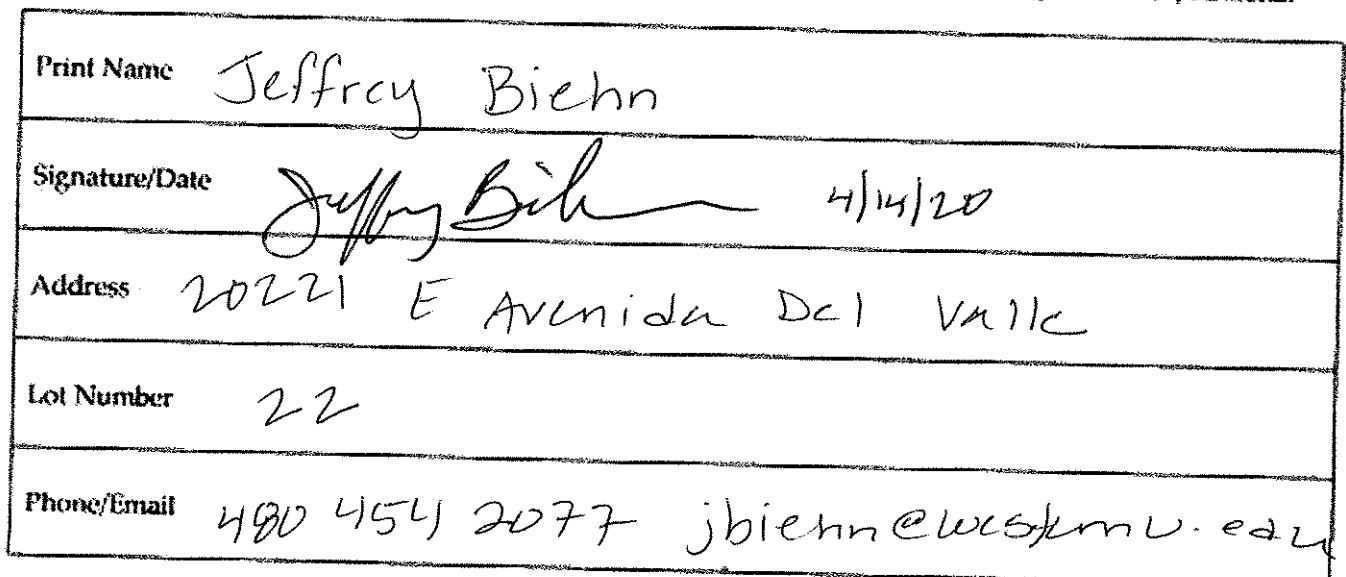 Print Name Jeffrey Biehn
Signature/Date Jeffrey Biehn 4/14/20
Address 20221 E Avenida Del Valle
Lot Number 22
Phone/Email 480 454 2077 jbiehn@westernu.edu